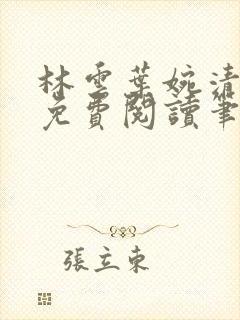 林雲葉婉清
免費閱讀筆
張立東